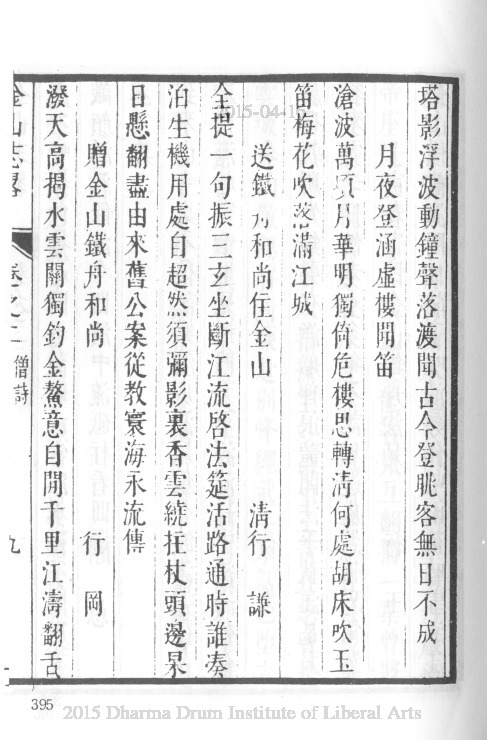 塔影浮波動鐘聲落渡聞古今登眺客無日不成
月夜登涵虛樓聞笛
滄波萬頃月華明獨倚危樓思轉淸何處胡床吹玉
笛梅花吹落滿江城
送鐵舟和尚住金山 淸行謙
全提一句振三玄坐斷江流啓法筵活路通時誰湊
泊生機用處自超然須彌影裏香雲繞拄杖頭邊杲
日懸翻盡由來舊公案從教寰海永流傳
贈金山鐵舟和尚 行岡
潑天高揭水雲關獨釣金鰲意自閒千里江濤翻舌
金山志畧 卷之二 僧詩 九
395
2015-04-15
2015 Dharma Drum Institute of Liberal Arts